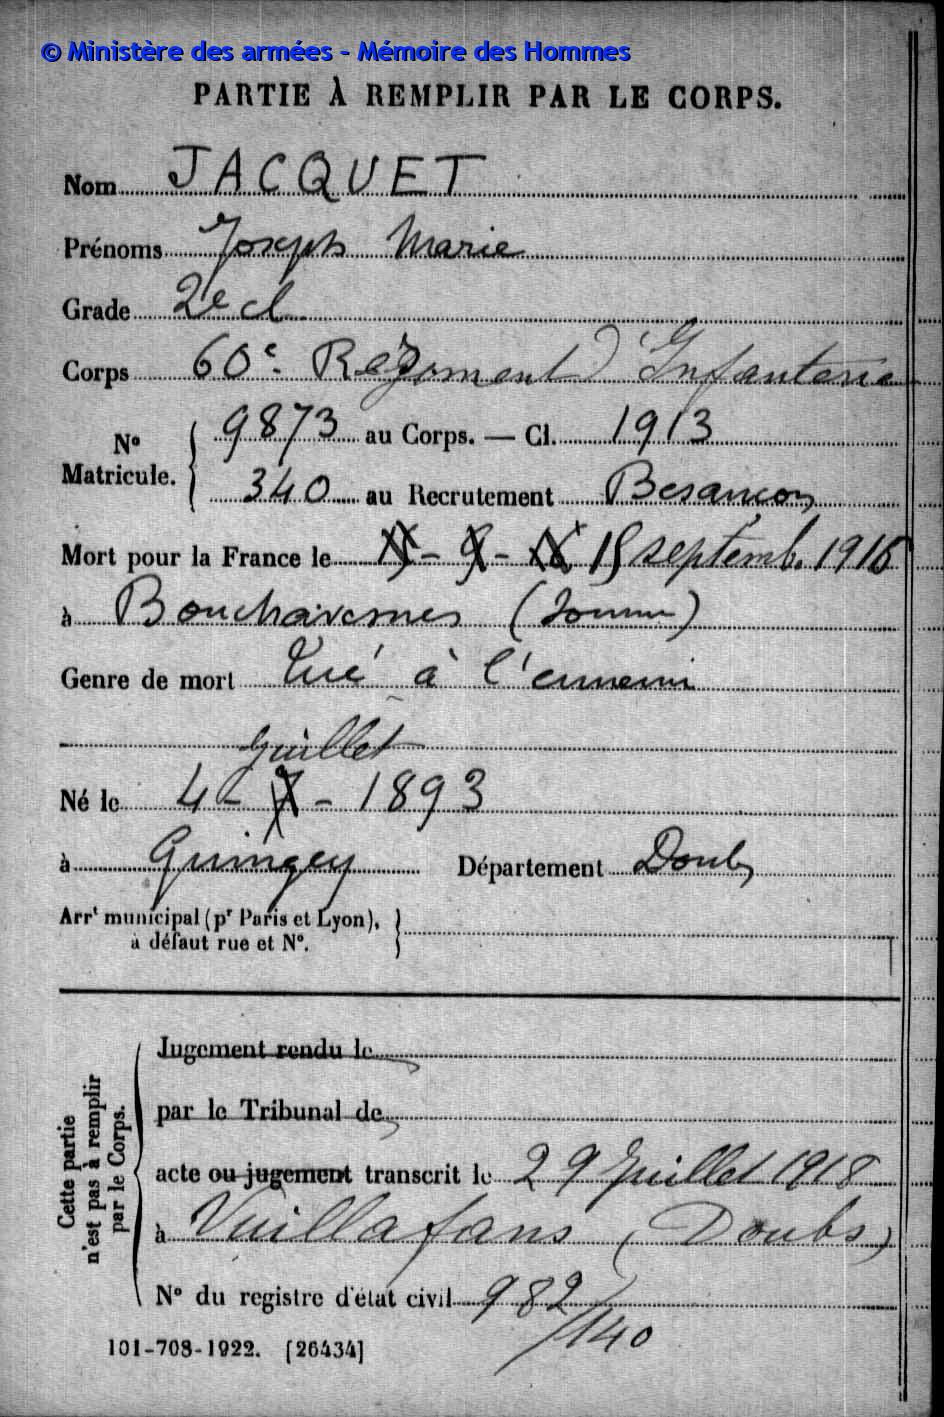 © Ministère des armées - Mémoire des Hommes
PARTIE À REMPLIR PAR LE CORPS.
Nom JACQUET
Prénoms Joseph Marie
Grade 2e cl
Corps 60e Régiment d'Infanterie
N° Matricule. 9873 au Corps. — Cl. 1913
340 au Recrutement Besançon
Mort pour la France le 15 septemb. 1916
à Bouchavesnes (Somme)
Genre de mort Tué à l'ennemi
Juillet
Né le 4 - 7 - 1893
à Quingey Département Doubs
Arrt municipal (pr Paris et Lyon),
à défaut rue et N°.
Cette partie
n'est pas à remplir
par le Corps.
Jugement rendu le
par le Tribunal de
acte ou jugement transcrit le 29 Juillet 1918
à Vuillafans (Doubs)
N° du registre d'état civil 982
/140
101-708-1922. [26434]